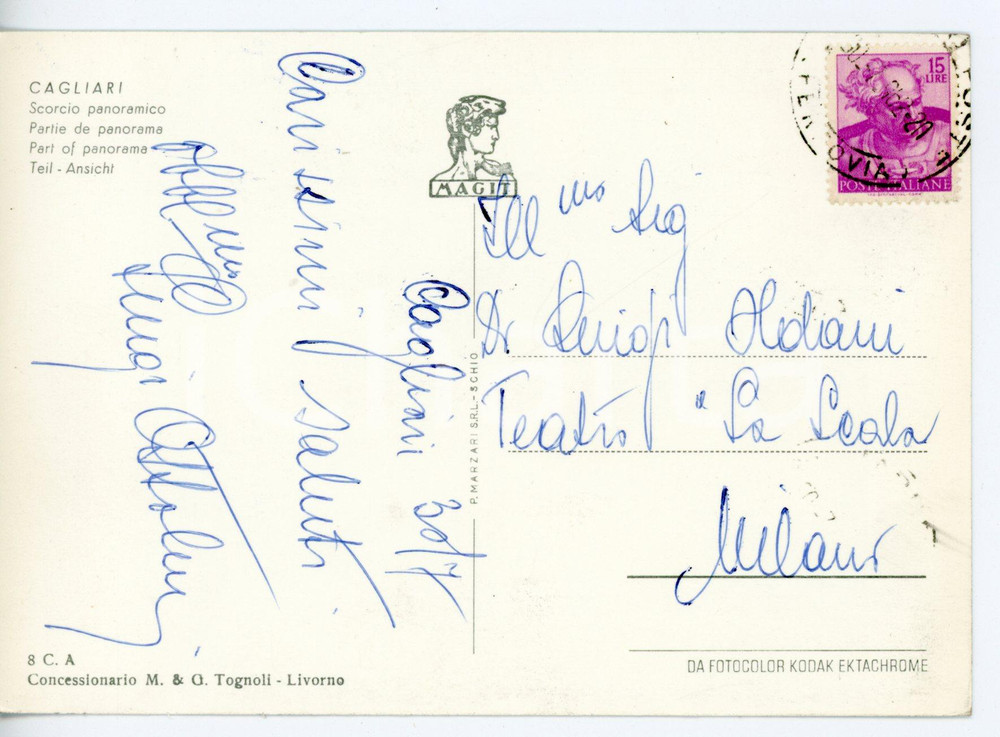 CAGLIARI
Scorcio panoramico
Partie de panorama
Part of panorama
Teil - Ansicht
MAGIT
15
LIRE
POSTE ITALIANE
FERROVIA
Cagliari 30/7
Carissimi saluti
obbl.mo
Luigi Ottolini
Ill mo Sig
Dr Luigi Oldani
Teatro "La Scala
Milano
P. MARZARI S.R.L. - SCHIO
8 C. A
Concessionario M. & G. Tognoli - Livorno
DA FOTOCOLOR KODAK EKTACHROME